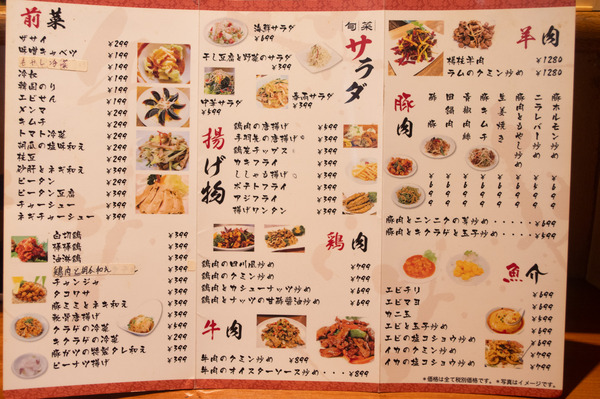 前菜
ザサイ ¥299
味噌キャベツ ¥299
もやし冷菜
冷奴 ¥299
韓国のり ¥299
エビせん ¥299
メンマ ¥299
キムチ ¥299
トマト冷菜 ¥299
胡瓜の塩味和え ¥299
枝豆 ¥299
砂肝とネギ和え ¥299
ピータン ¥399
ピータン豆腐 ¥399
チャーシュー ¥399
ネギチャーシュー ¥399
白切鶏 ¥399
棒棒鶏 ¥399
油淋鶏 ¥399
チャンジャ ¥399
タコワサ ¥399
豚ミミとネギ和え ¥399
軟骨唐揚げ ¥399
クラゲの冷菜 ¥399
キクラゲの冷菜 ¥399
豚ガツの特製タレ和え ¥399
ピーナツ揚げ ¥399
旬菜サラダ
海鮮サラダ ¥399
干し豆腐と野菜のサラダ ¥399
中華サラダ ¥399
春雨サラダ ¥399
揚げ物
鶏肉の唐揚げ ¥399
手羽先の唐揚げ
鶏皮チップス
カキフライ
ししゃも揚げ
ポテトフライ
アジフライ
揚げワンタン
鶏肉
鶏肉の四川風炒め ¥799
鶏肉のクミン炒め ¥799
鶏肉とカシューナッツ炒め
鶏肉とナッツの甘酢醤油炒め
牛肉
牛肉のクミン炒め ¥899
牛肉のオイスターソース炒め・・・¥899
羊肉
孜然羊肉 ¥1280
ラムのクミン炒め ¥1280
豚肉
酢豚
回鍋肉
青椒肉絲
豚キムチ
生姜焼き
豚肉ともやし炒め
ニラレバー炒め
豚ホルモン炒め
豚肉とニンニクの芽炒め・・・・・¥699
豚肉とキクラゲと玉子炒め・・・・¥699
魚介
エビチリ ¥699
エビマヨ ¥699
カニ玉 ¥699
エビと玉子炒め ¥699
エビの塩コショウ炒め ¥699
イカのクミン炒め
イカの塩コショウ炒め
*価格は全て税別価格です。*写真はイメージです。